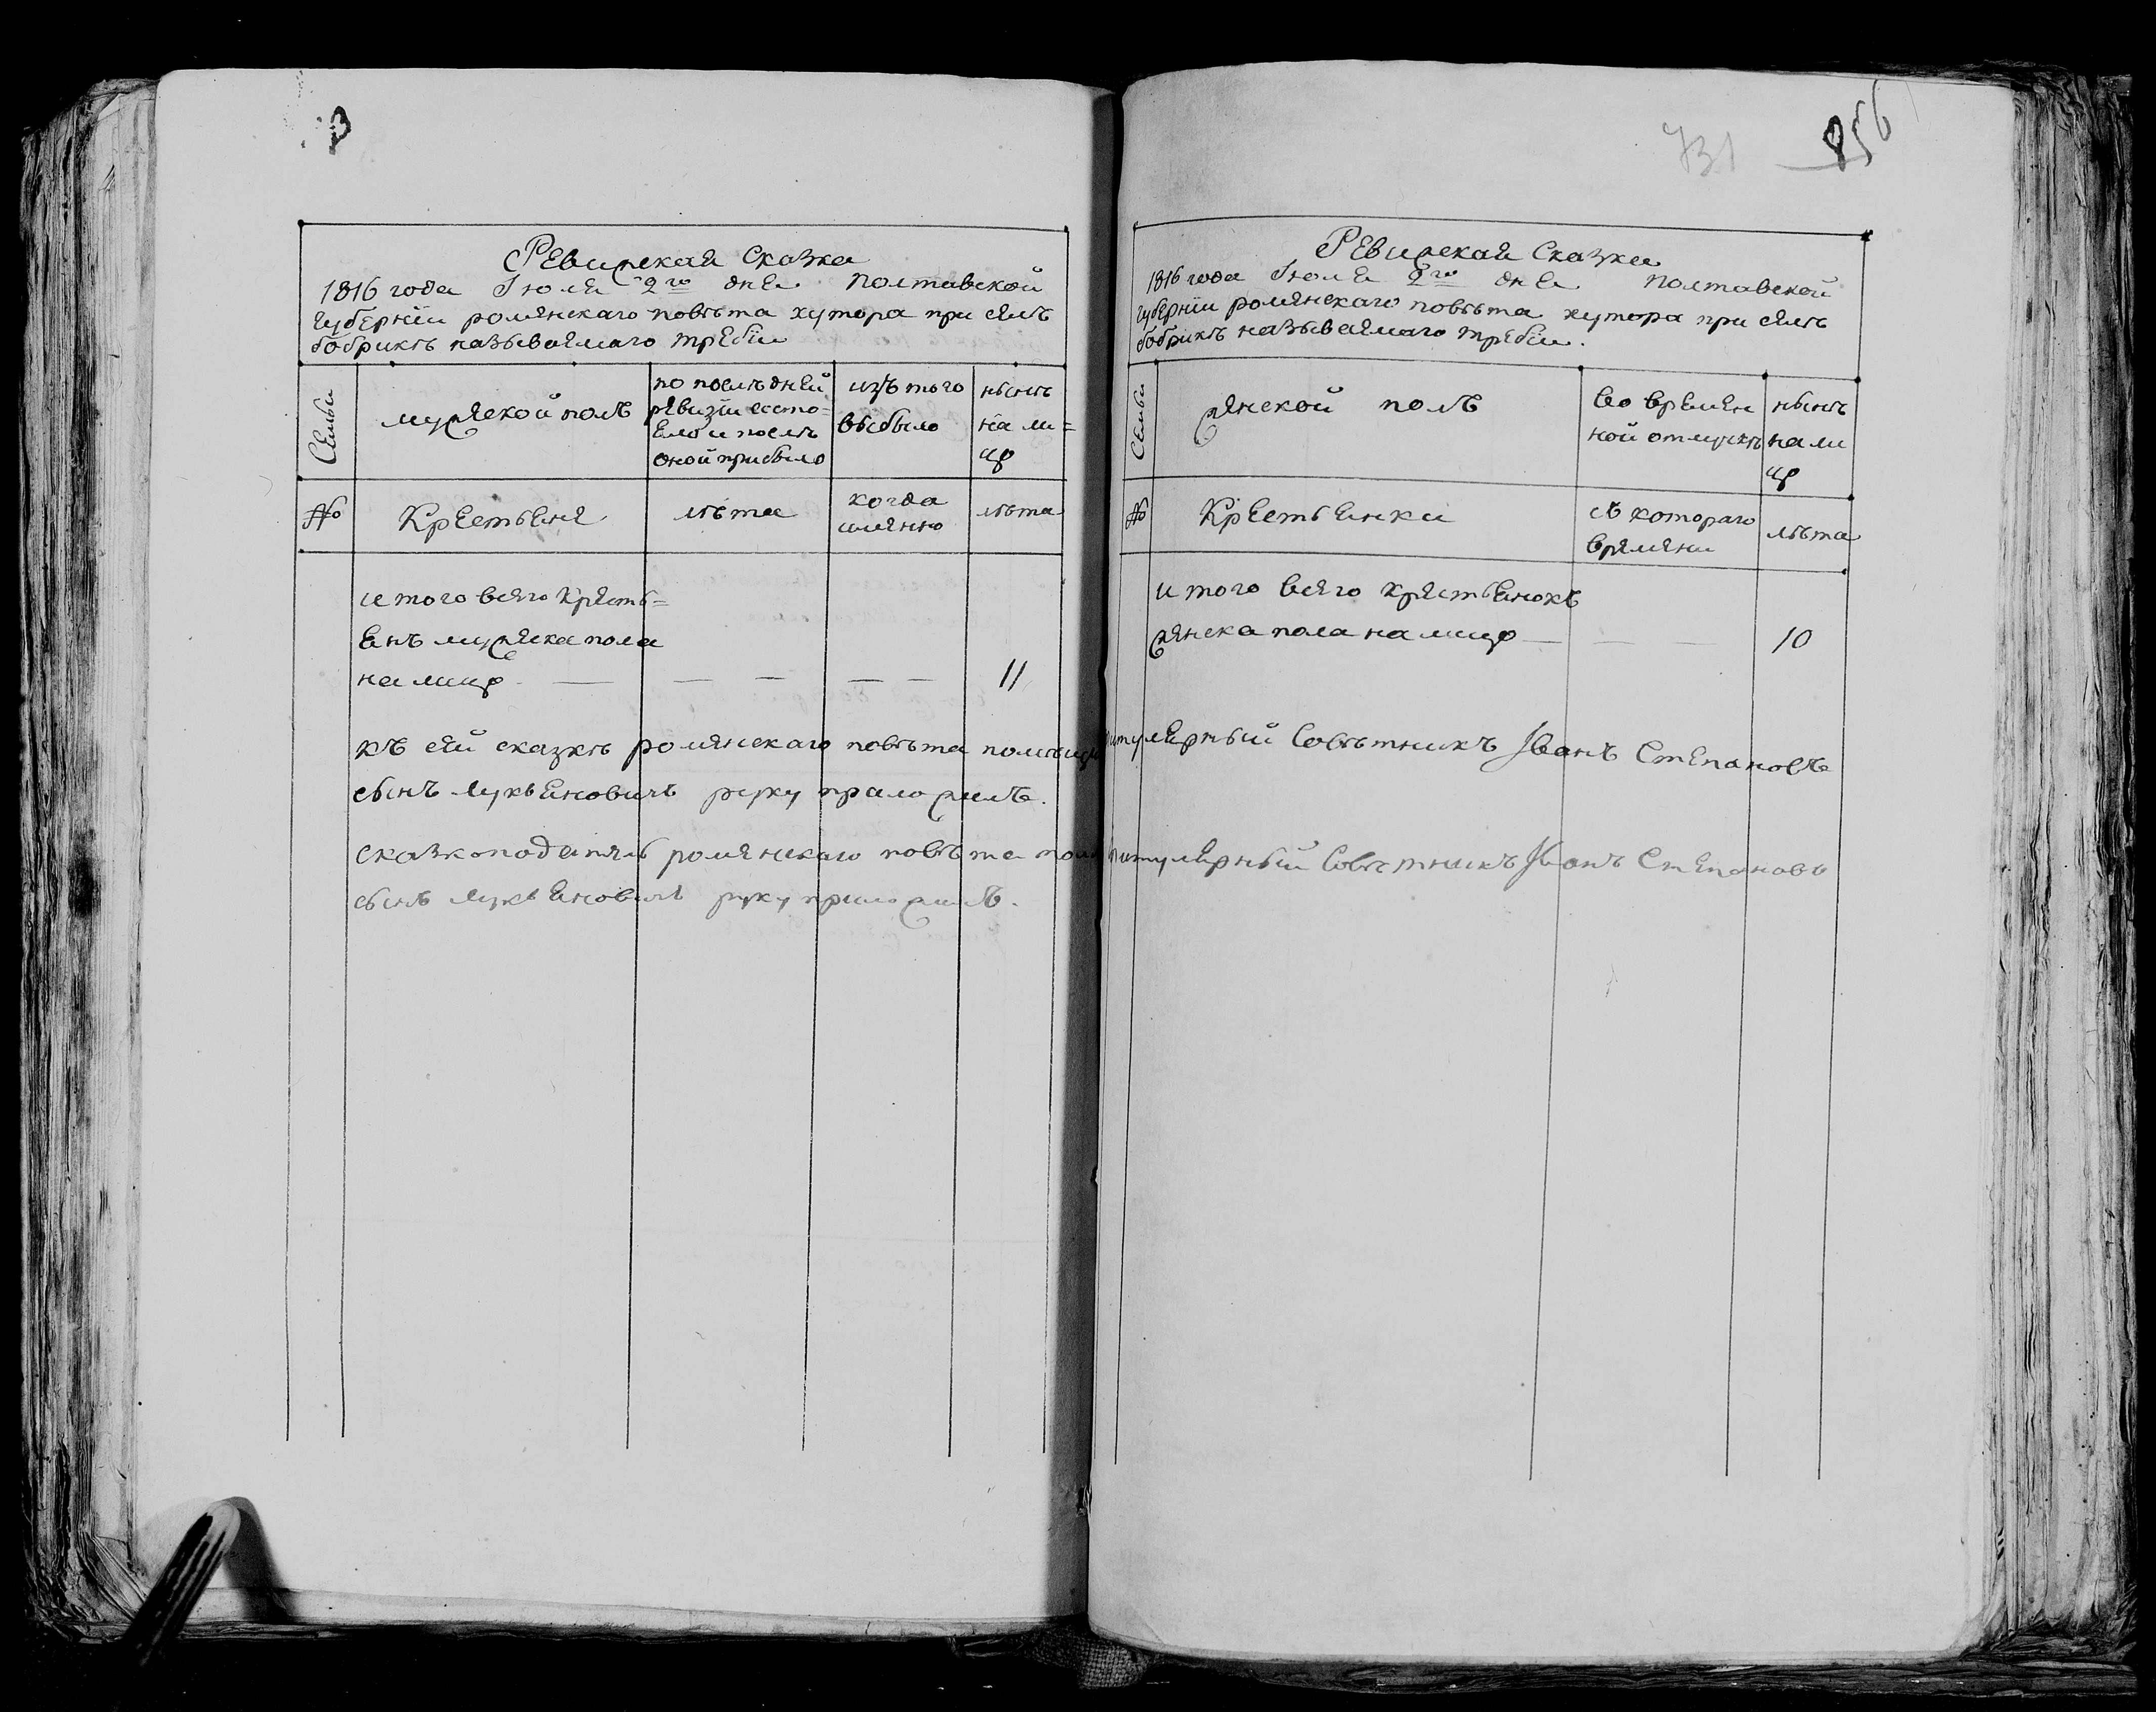 3
Ревизская Сказка
1816 года Іюля 2го дня Полтавской
Губерніи роменскаго повѣта хутора при селѣ
бобрикѣ называемаго требы
Семьи
мужеской полъ
по послѣдней
ревизіи состо=
яло и послѣ
оной прибыло
изъ того
выбыло
нынѣ
на ли=
цо
№
Крестьяне
лѣта
когда
именно
лѣта
итого всего крестъ=
янъ мужеска пола
на лицо — — — — — 11
731 856
Ревизская Сказка
1816 года Іюля 2го дня Полтавской
Губерніи роменскаго повѣта хутора при селѣ
бобрикѣ называемаго требы.
Семьи
женской полъ
во времен
ной отлучкѣ
нынѣ
на ли
цо
№
Крестьянки
съ котораго
времени
лѣта
итого всего крестьянокъ
женска пола на лицо — — — 10
къ сей сказкѣ роменскаго повѣта титулярный Совѣтникъ Іванъ Степановъ
сынъ Лукьяновичъ руку приложилъ.
сказкоподатель роменскаго повѣта титулярный Совѣтникъ Іванъ Степановъ
сынъ Лукьяновичъ руку приложилъ.